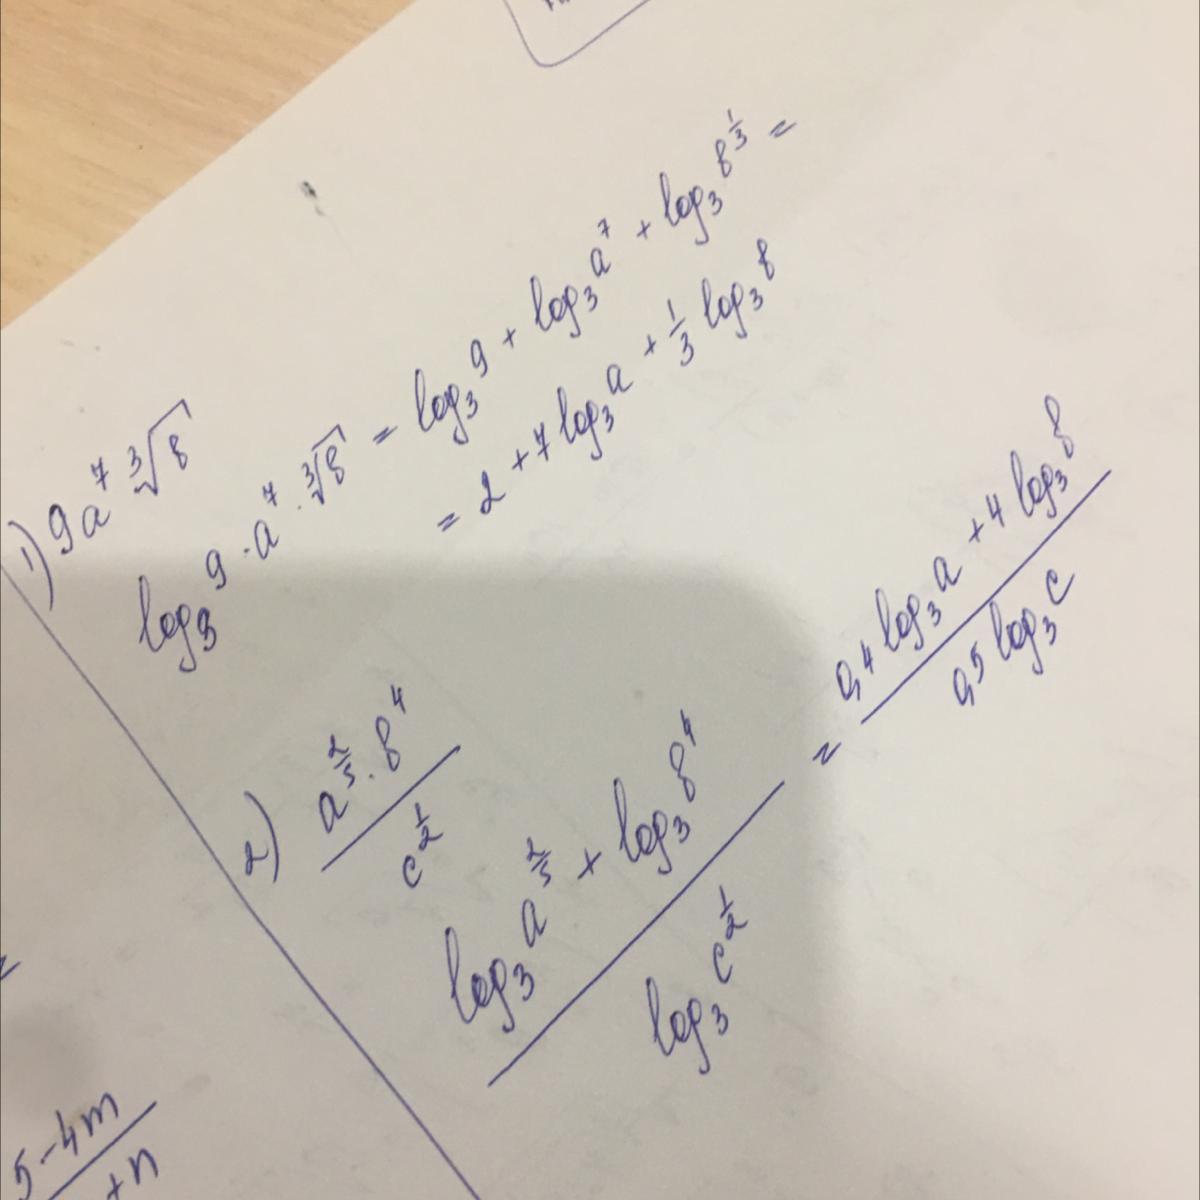 1) 9a⁷ ∛8
log₃ 9 · a⁷ · ∛8 = log₃ 9 + log₃ a⁷ + log₃ 8^(1/3) =
= 2 + 7 log₃ a + 1/3 log₃ 8
2) (a^(2/5) · 8⁴) / c^(1/2)
(log₃ a^(2/5) + log₃ 8⁴) / (log₃ c^(1/2)) = (0,4 log₃ a + 4 log₃ 8) / (0,5 log₃ c)
5-4m
+n